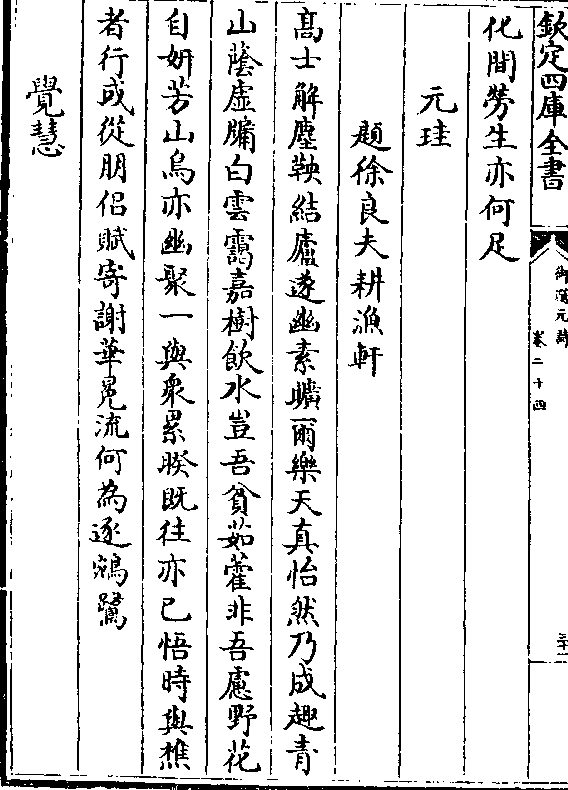 欽定四庫全書
御選元詩
卷二十四
三十一
化間勞生亦何足
元珪
題徐良夫耕漁軒
高士解塵鞅結廬遂幽素曠爾樂天真怡然乃成趣青
山蔭虛牖白雲靄嘉樹飲水豈吾貧茹藿非吾慮野花
自妍芳山鳥亦幽聚一與衆累暌既往亦已悟時與樵
者行或從朋侶賦寄謝華冕流何為逐鵷鷺
覺慧